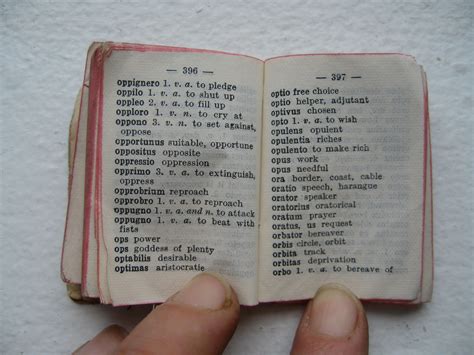 — 396 —
oppignero 1. v. a. to pledge
oppilo 1. v. a. to shut up
oppleo 2. v. a. to fill up
opploro 1. v. n. to cry at
oppono 3. v. n. to set against,
oppose
opportunus suitable, opportune
oppositus opposite
oppressio oppression
opprimo 3. v. a. to extinguish,
oppress
opprobrium reproach
opprobro 1. v. a. to reproach
oppugno 1. v. a. and n. to attack
oppugno 1. v. a. to beat with
fists
ops power
ops goddess of plenty
optabilis desirable
optimas aristocratic
— 397 —
optio free choice
optio helper, adjutant
optivus chosen
opto 1. v. a. to wish
opulens opulent
opulentia riches
opulento to make rich
opus work
opus needful
ora border, coast, cable
oratio speech, harangue
orator speaker
oratorius oratorical
oratum prayer
oratus, us request
orbator bereaver
orbis circle, orbit
orbita track
orbitas deprivation
orbo 1. v. a. to bereave of